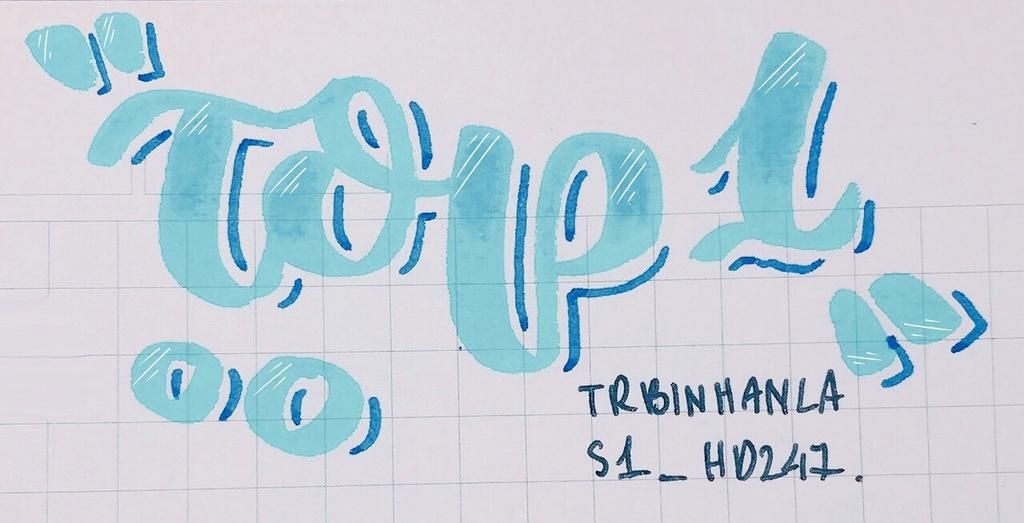 Top 1
TRBINHANLA
S1_HD247.